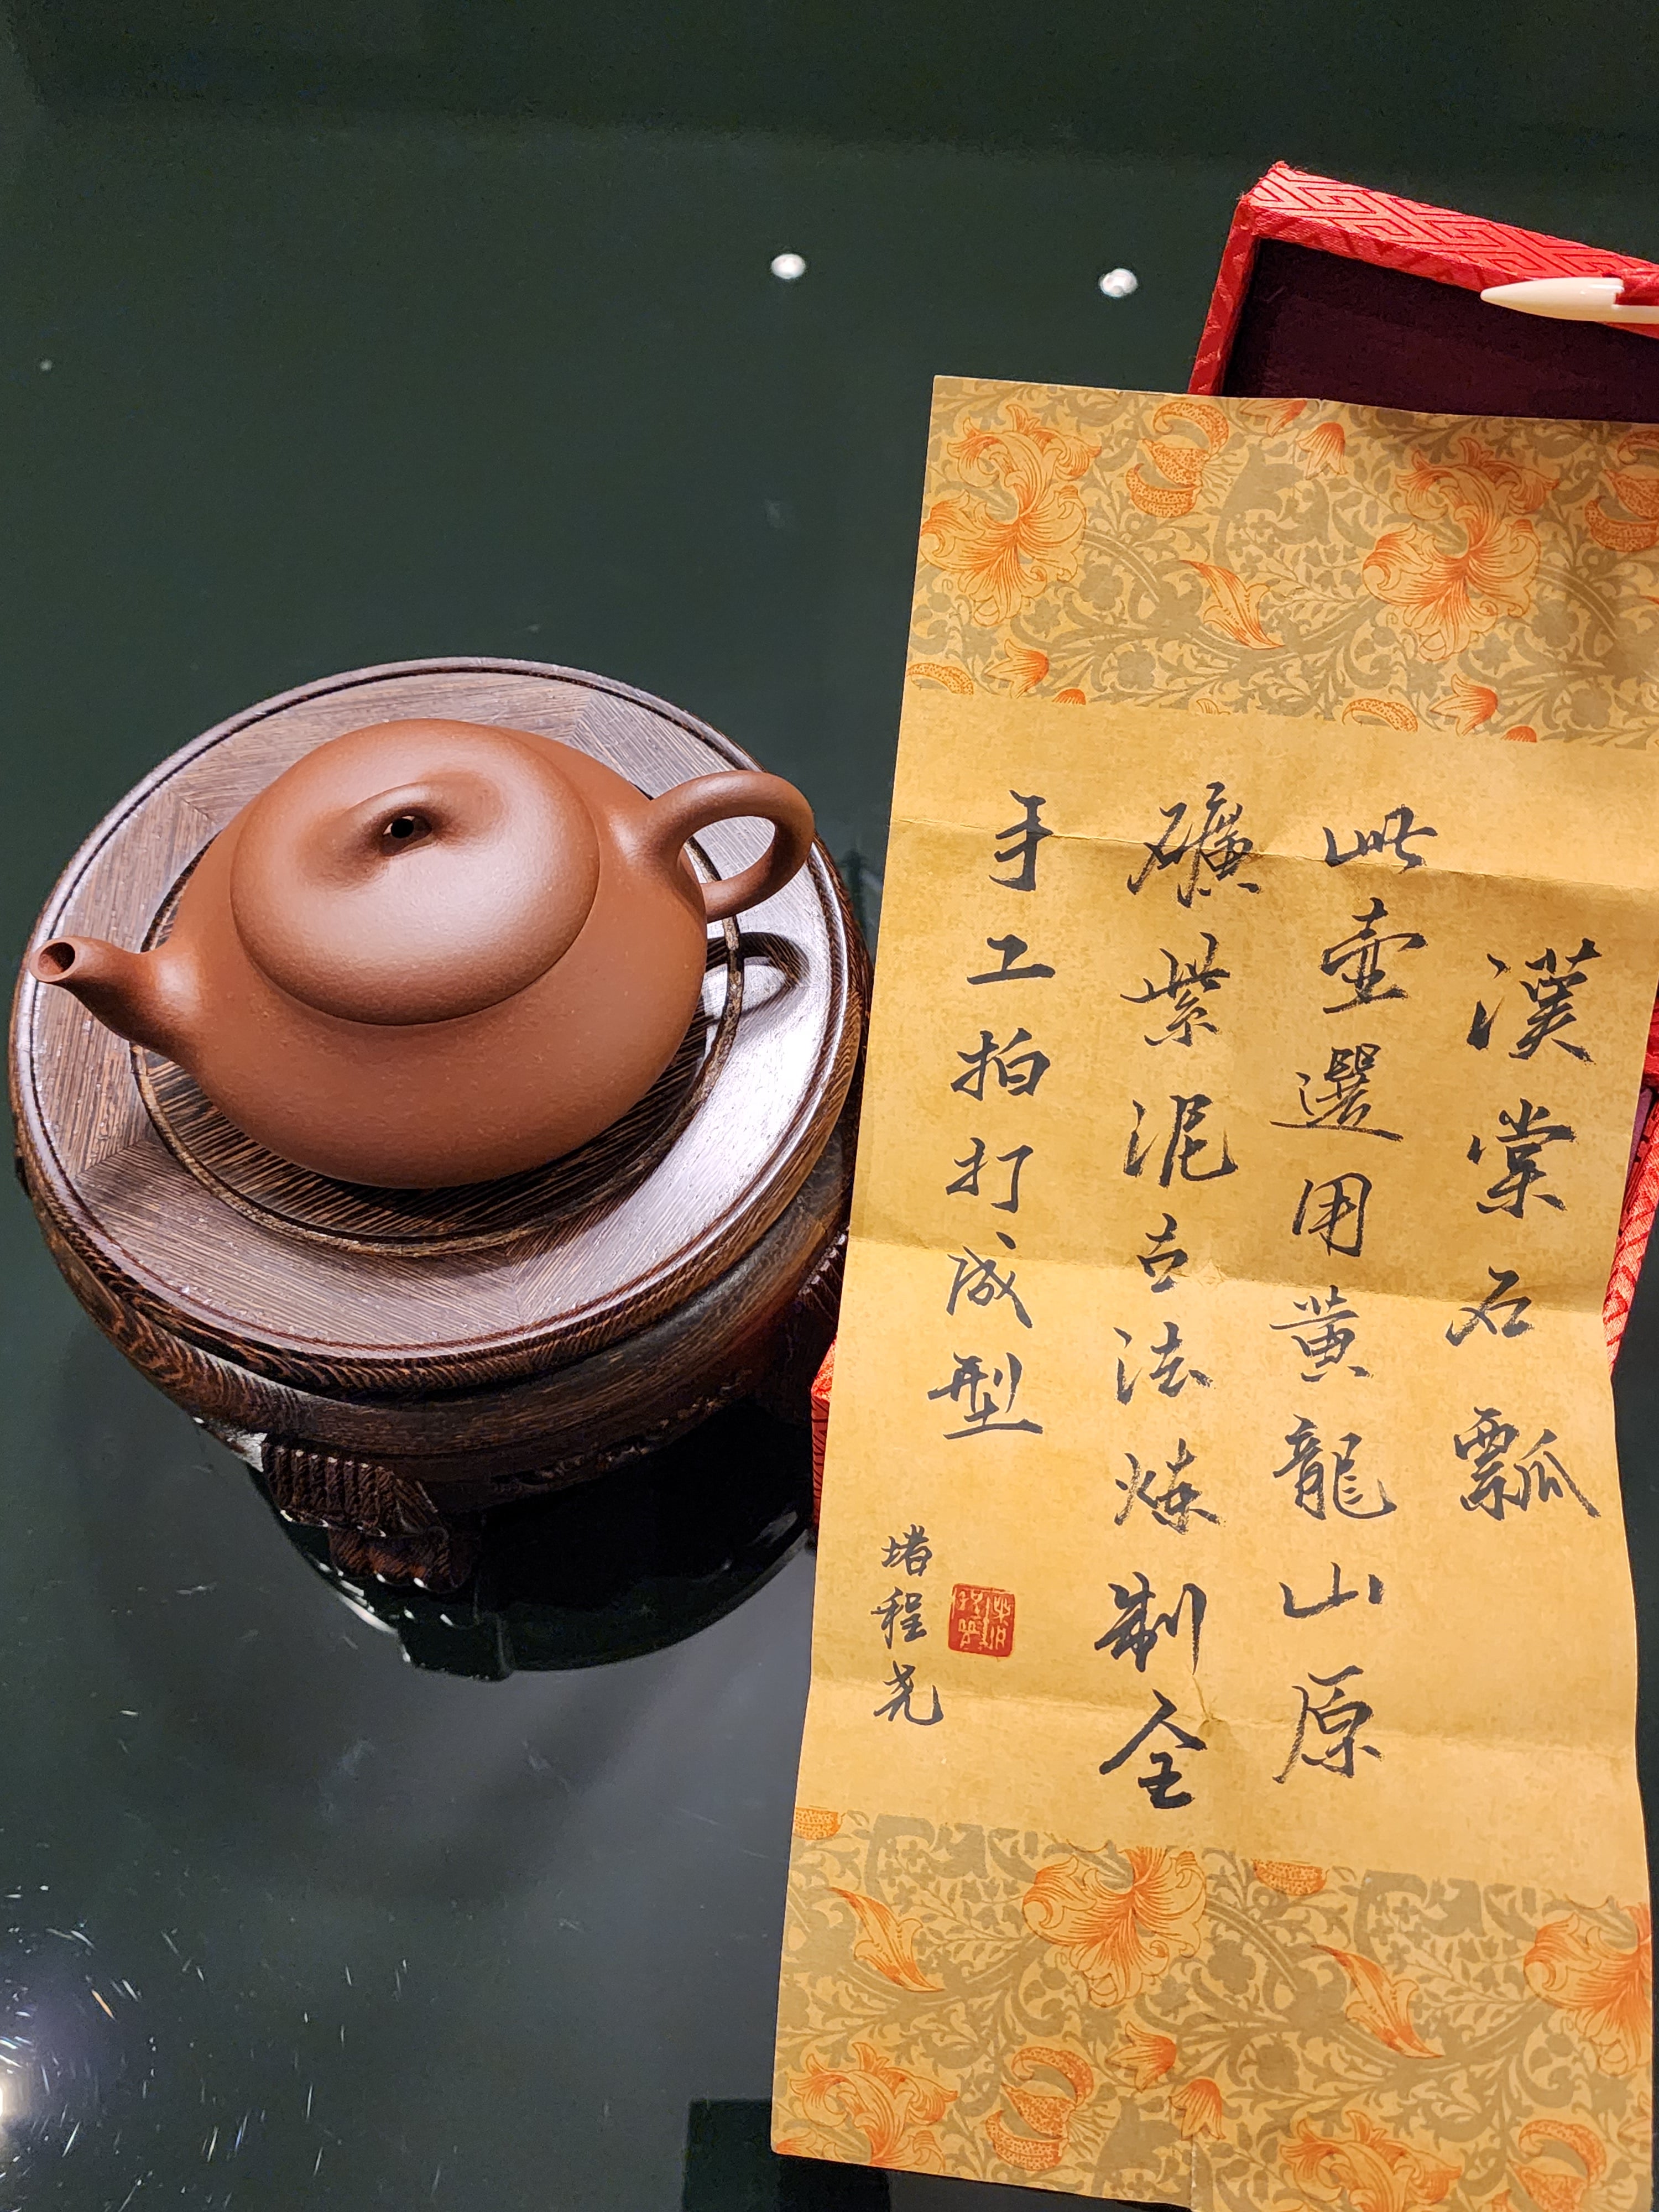 漢棠石瓢
此壶選用黄龍山原
礦紫泥古法炼制全
手工拍打成型
堵程尧